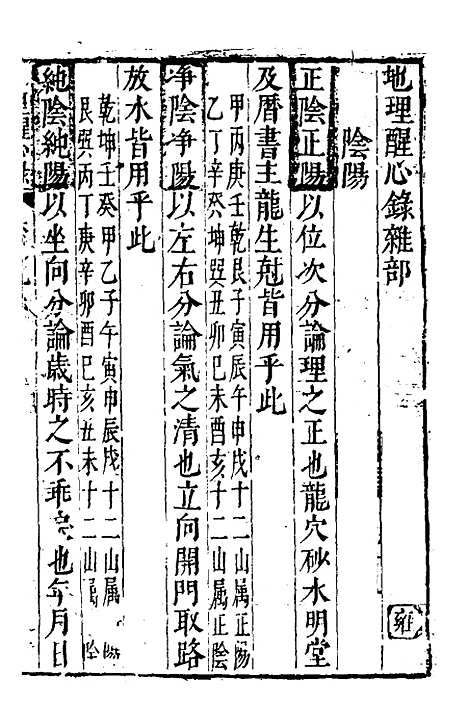 地理醒心錄雜部
雍
陰陽
正陰正陽以位次分論理之正也龍穴砂水明堂
甲丙庚壬乾艮子寅辰午申戌十二山屬正陽
乙丁辛癸坤巽丑卯巳未酉亥十二山屬正陰
及曆書主龍生尅皆用乎此
淨陰淨陽以左右分論氣之清也立向開門取路
乾坤壬癸甲乙子午寅申辰戌十二山屬 陽
艮巽丙丁庚辛卯酉巳亥丑未十二山屬 陰
放水皆用乎此
純陰純陽以坐向分論歲時之不乖 也年月日